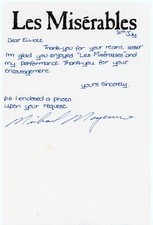 Les Misérables
31st July
Dear Elliott
Thank-you for your recent letter
I'm glad you enjoyed "Les Misérables" and
my performance. Thank-you for your
encouragement
Yours Sincerely,
p.s. I enclosed a photo
upon your request
Michael